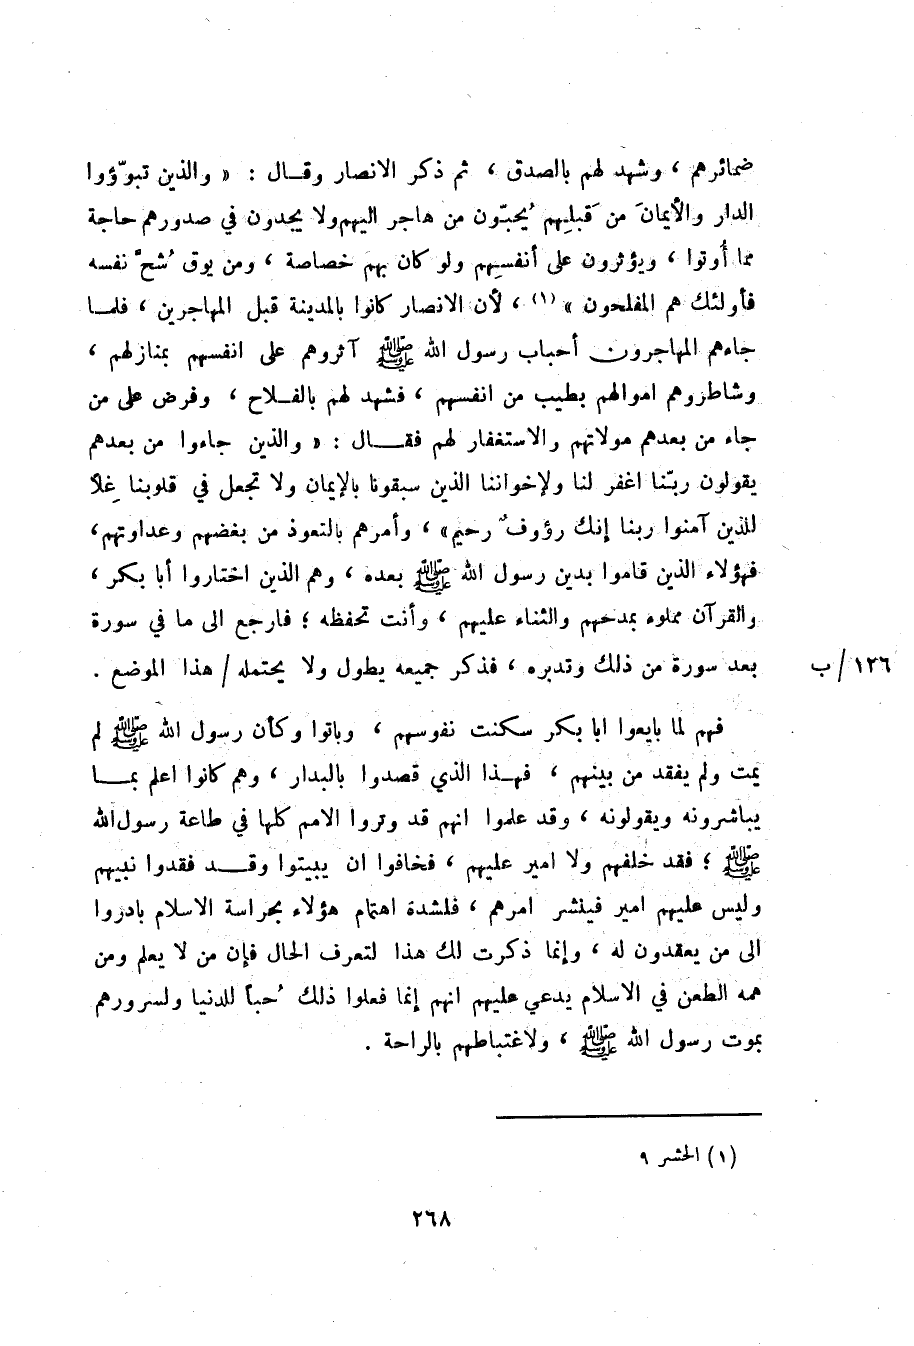 ضمائرهم ، وشهد لهم بالصدق ، ثم ذكر الانصار وقـال : « والذين تبوّؤوا
الدار والأيمانَ من قَبلِهم يُحبّون من هاجر اليهم ولا يجدون في صدورهم حاجة
مما أُوتوا ، ويؤثرون على أنفسِهم ولو كان بهم خصاصة ، ومن يوق شُحَّ نفسه
فأولئك هم المفلحون » (١) ، لأن الانصار كانوا بالمدينة قبل المهاجرين ، فلمـا
جاءهم المهاجرون أحباب رسول الله ﷺ آثروهم على انفسهم بمنازلهم ،
وشاطروهم اموالهم بطيب من انفسهم ، فشهد لهم بالفـلاح ، وفرض على من
جاء من بعدهم موالاتهم والاستغفار لهم فقـــال : « والذين جاءوا من بعدهم
يقولون ربّنا اغفر لنا ولإخواننا الذين سبقونا بالإيمان ولا تجعل في قلوبنا غِلاً
للذين آمنوا ربنا إنك رؤوفٌ رحيم» ، وأمرهم بالتعوذ من بغضهم وعداوتهم،
فهؤلاء الذين قاموا بدين رسول الله ﷺ بعده ، وهم الذين اختاروا أبا بكر ،
والقرآن مملوء بمدحهم والثناء عليهم ، وأنت تحفظه ؛ فارجع الى ما في سورة
بعد سورة من ذلك وتدبره ، فذكر جميعه يطول ولا يحتمله / هذا الموضع .
١٢٦/ب
فهم لما بايعوا ابا بكر سكنت نفوسهم ، وباتوا وكأن رسول الله ﷺ لم
يمت ولم يفقد من بينهم ، فهـذا الذي قصدوا بالبدار ، وهم كانوا اعلم بمـــا
يباشرونه ويقولونه ، وقد علموا انهم قد وتروا الامم كلها في طاعة رسول الله
ﷺ ؛ فقد خلفهم ولا امير عليهم ، فخافوا ان يبيتوا وقـــد فقدوا نبيهم
وليس عليهم امير فينشر امرهم ، فلشدة اهتمام هؤلاء بحراسة الاسلام بادروا
الى من يعقدون له ، وإنما ذكرت لك هذا لتعرف الحال فإن من لا يعلم ومن
همه الطعن في الاسلام يدعي عليهم انهم إنما فعلوا ذلك حُباً للدنيا ولسرورهم
بموت رسول الله ﷺ ، ولاغتباطهم بالراحة .
(١) الحشر ٩
٢٦٨